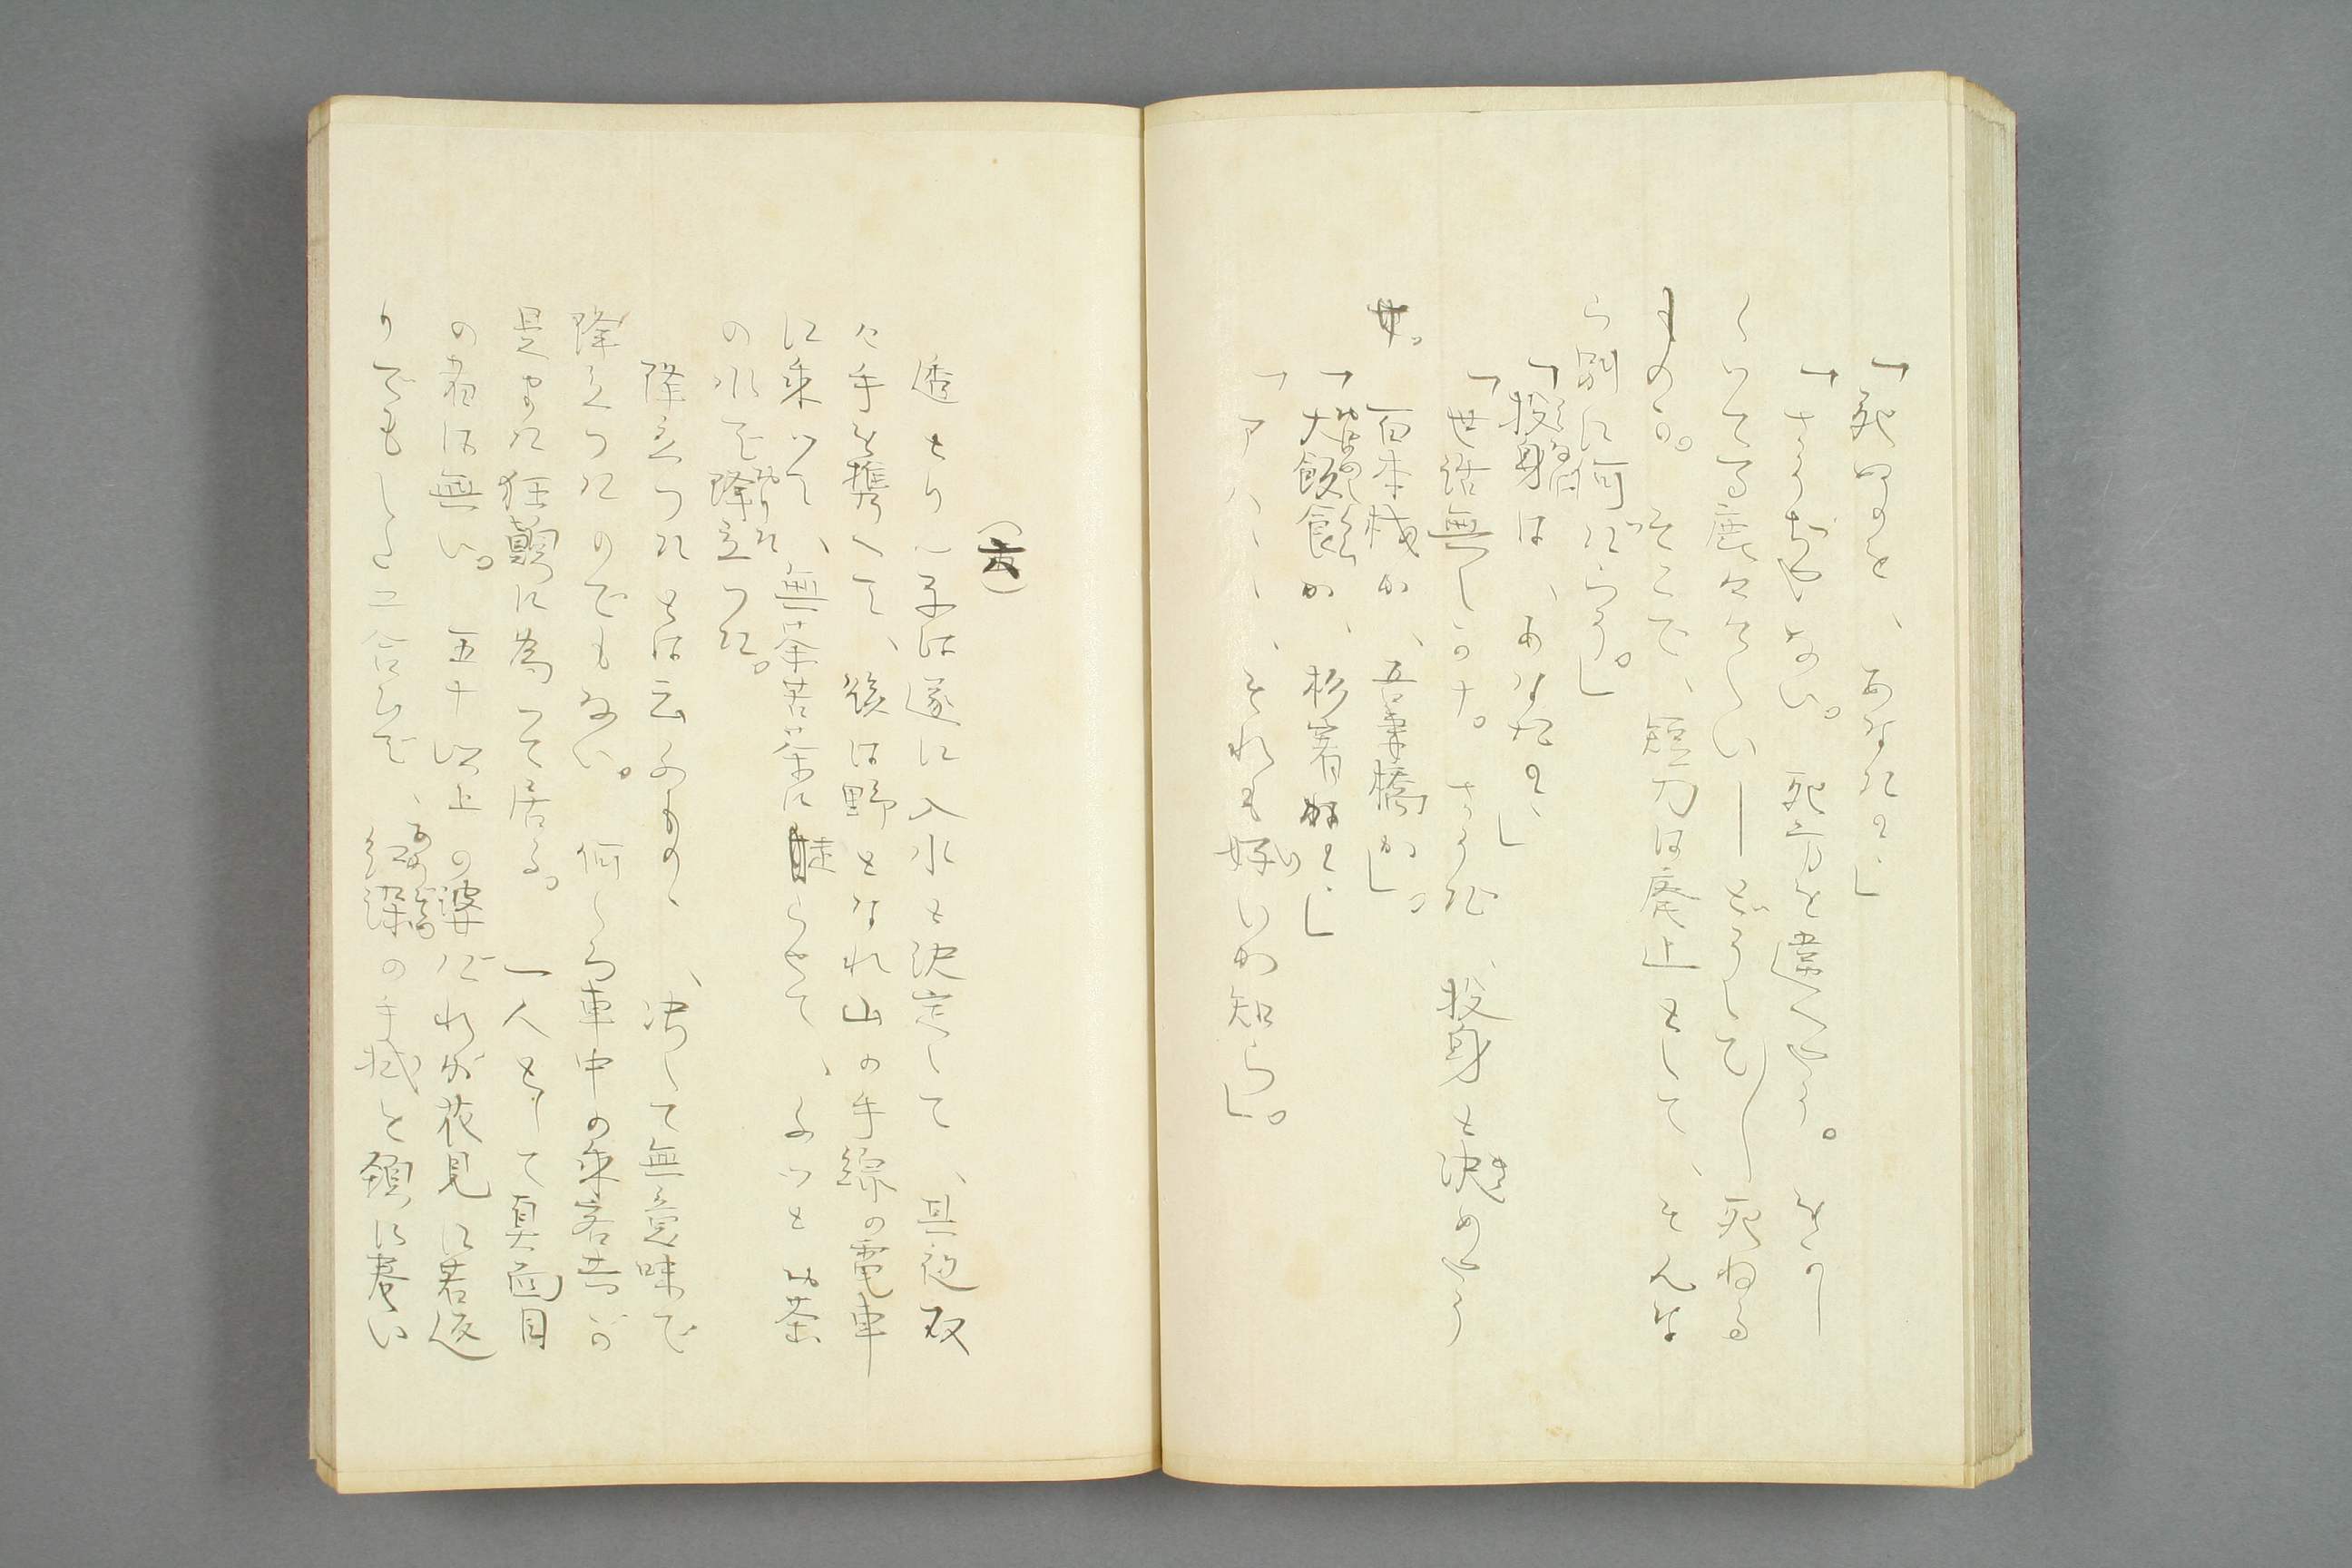 「死ぬのを、あなたの、」
「さうぢやない。死方を違へやう。をかし
くいてる鹿々々しい――どうして死ねる
ものか。そこで、短刀は廃止として、そんな
ら別に何だらう。」
「投身は、あなたの、」
「世話無しのナ。さうだ、投身と決めやう
せ。
「百本杭か、吾妻橋か」。
「大飯食か、杉箸かの、」
「アハヽヽヽ、それも好いか知ら」。
(六)
透とり一子は遂に入水と決定して、其夜双
々手を携へて、後は野となれ山の手線の電車
に乗つて、無茶苦茶に走らせて、ふいとお茶
の水で降立つた。
降立つたとは云ふものゝ、決して無意味で
降立つたのでもない。何しろ車中の乗客共が
是まに狂顛に為つて居る。一人として真面目
の者は無い。五十以上の婆だれが花見に若返
りでもしたニ合むで、紅染の手拭を領に巻い